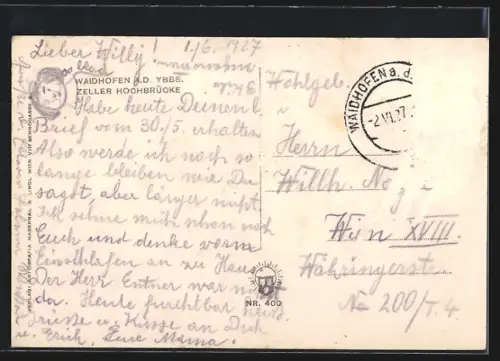 Lieber Willy! 1./6. 1927
WAIDHOFEN A.D. YBBS.
ZELLER HOCHBRÜCKE
Habe heute Deinen l.
Brief vom 30./5. erhalten
Also werde ich noch so
lange bleiben wie Du
sagst, aber länger nicht
Ich sehne mich schon nach
Euch und denke vorm
Einschlafen an zu Haus
Der Herr Entner war
da. Heute furchtbar heiß
Grüsse u. Küsse an Dich
u. Erich, Eure Mama.
NR. 400
WAIDHOFEN a. d.
-2.VI.27.
Wohlgeb.
Herrn
Willh.
Wien XVIII
Währingerstr
No 200/T.4